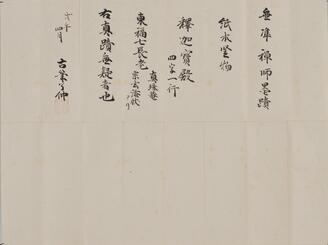 無準禅師墨蹟
紙本竪物
釋迦寶殿
四字一行
東福七長老
真珠菴
宗玄添状アリ
右真蹟無疑者也
戊年
四月
古筆了仲